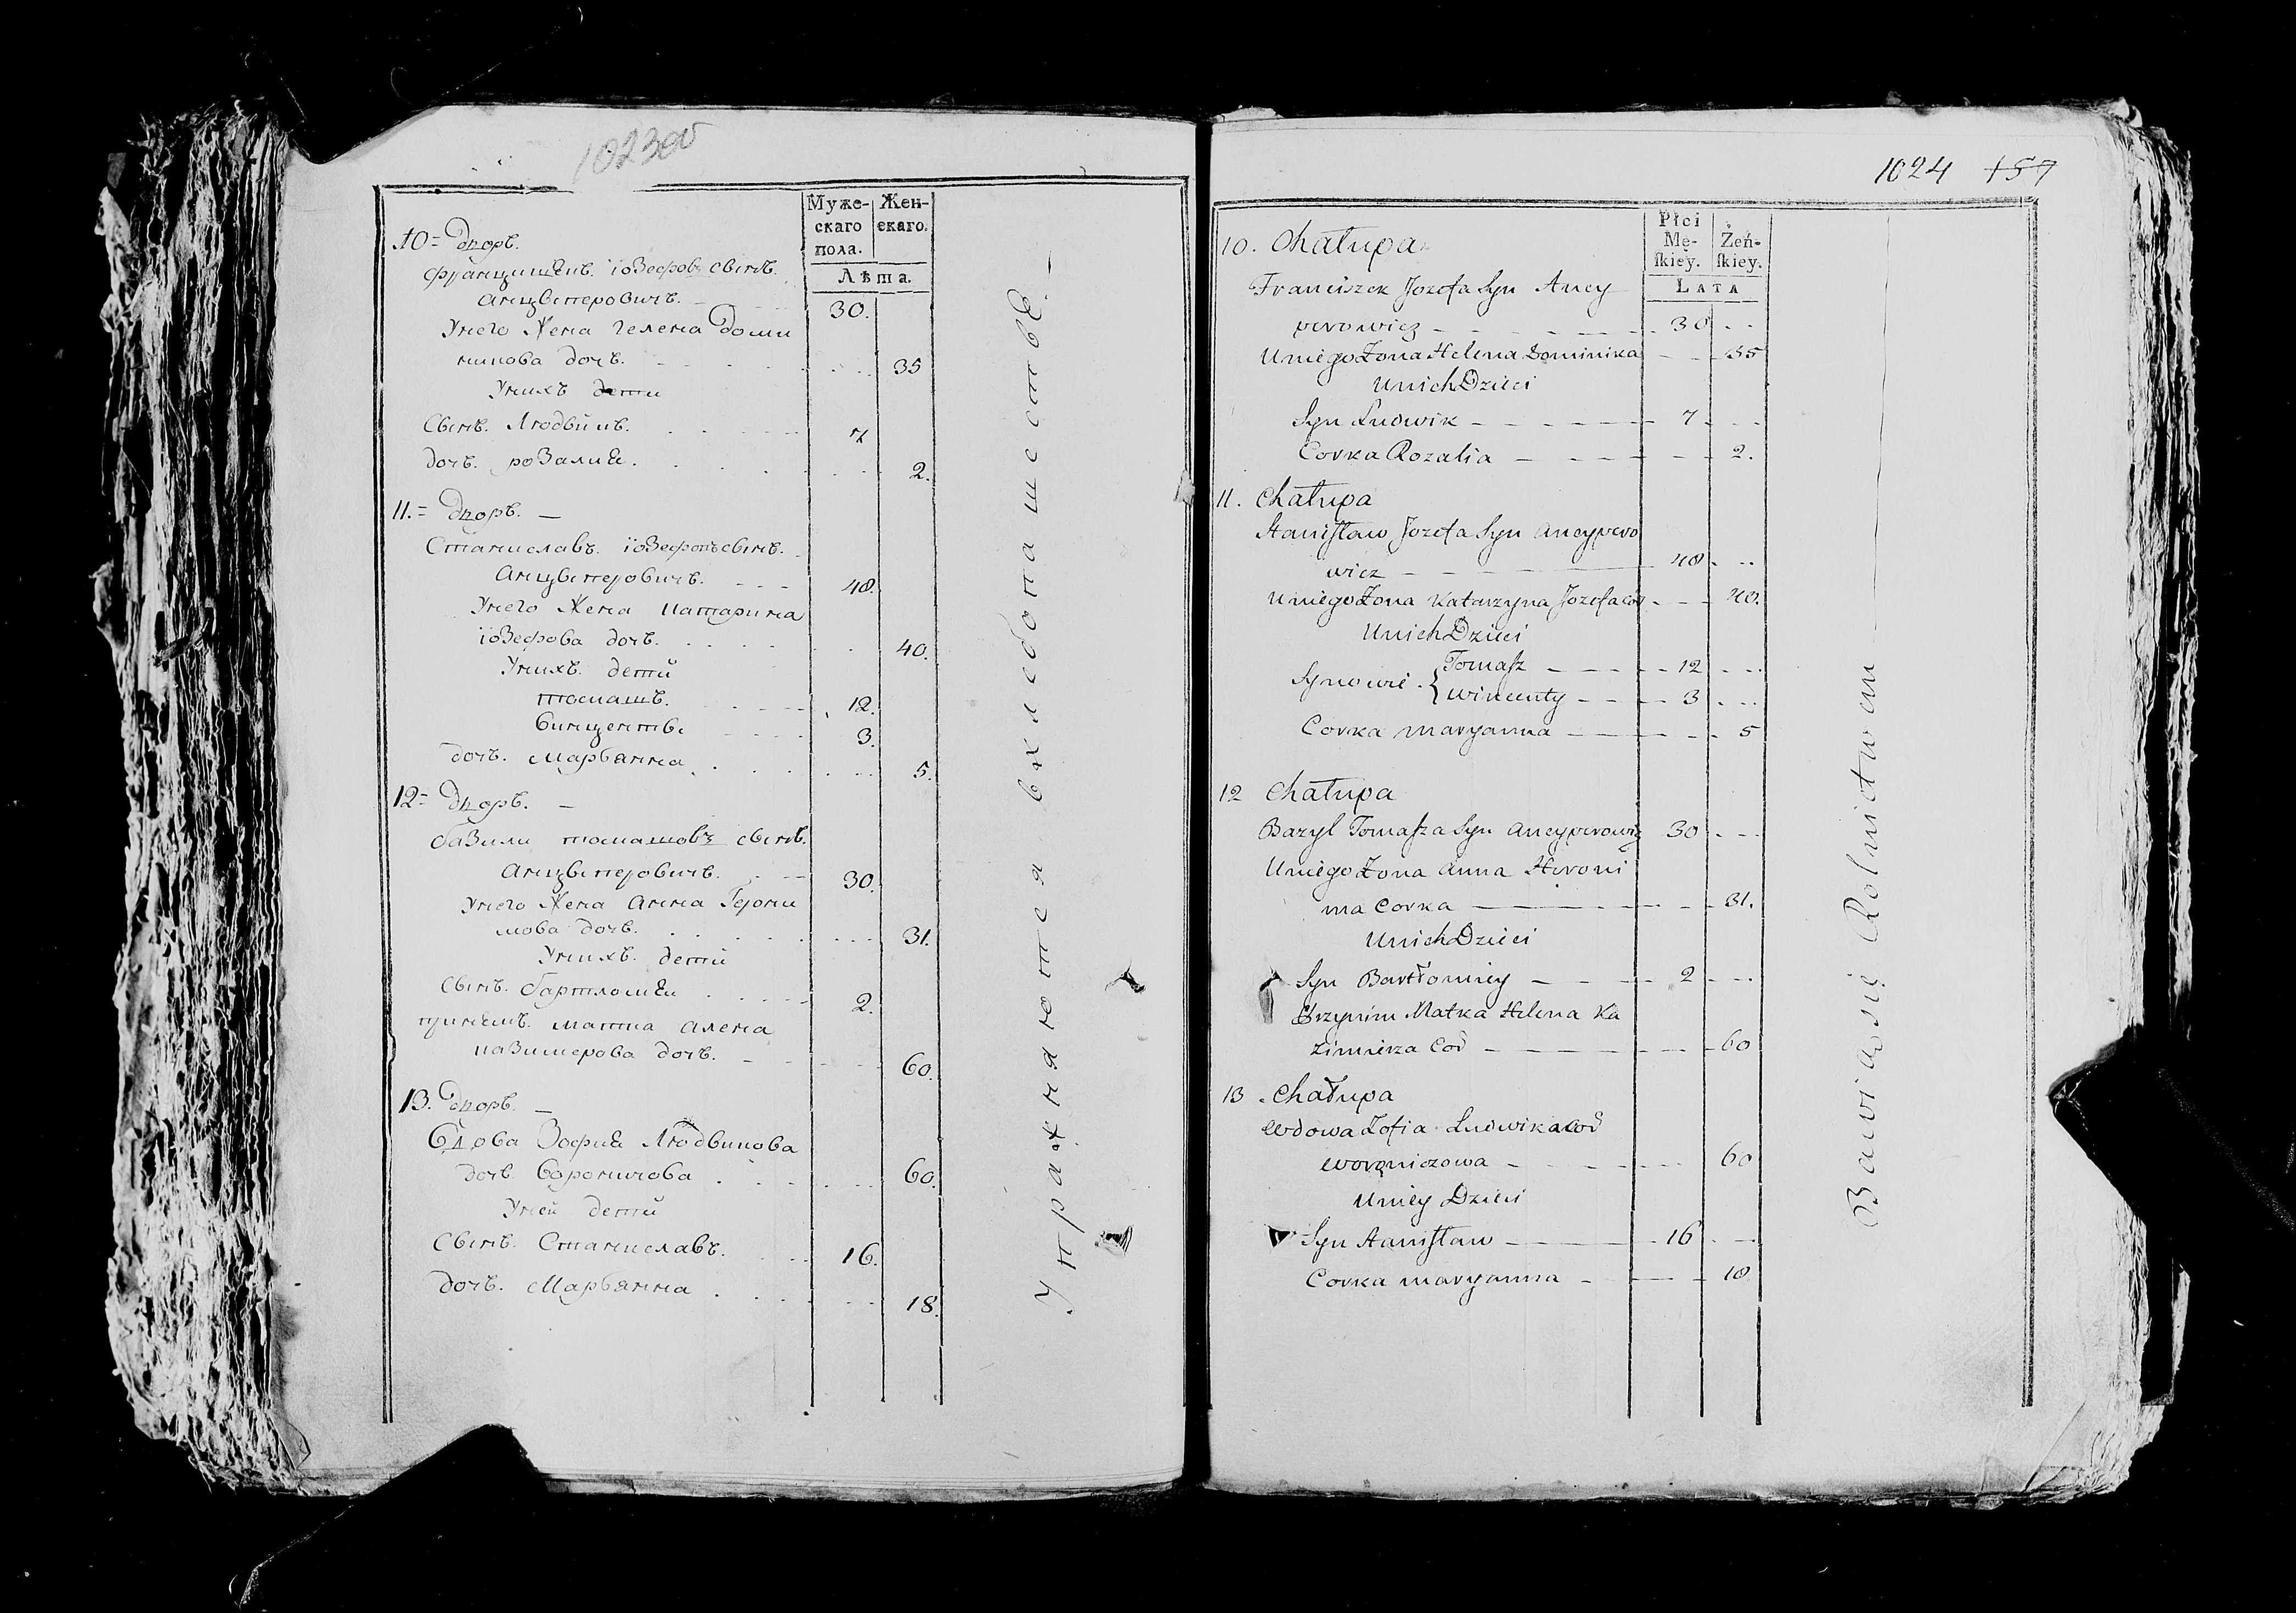 1023об
Муже-
скаго
пола.
Жен-
скаго.
Лѣта.
10= Дворъ.
Францишекъ іозефовъ сынъ.
Анцыперовичъ. 30.
Унего Жена Гелена Доми
никова дочъ. 35
Унихъ дети
Сынъ. Людвикъ. 7
дочъ. розалиѣ. 2.
11.= Дворъ. —
Станиславъ. іозефовъ сынъ.
Анцыперовичъ. 48.
Унего Жена Катарина
іозефова дочъ. 40.
Унихъ. дети
томашъ. 12.
винцентъ. 3.
дочъ. Марьянна 5.
12= Дворъ. —
базили томашовъ сынъ.
Анцыперовичъ. 30.
Унего Жена Анна Герони
мова дочъ. 31.
Унихъ. дети
Сынъ. бартломѣи 2.
принемъ. матка алена
казимерова дочъ. 60.
13. Дворъ. —
Вдова Зофиѣ Людвикова
дочъ вороничова 60.
Уней дети
Сынъ. Станиславъ. 16.
дочъ. Марьянна 18.
Упражняются въхлебопашествѣ. —
1024 157
Płci
Mę-
ſkiey.
Żeń-
ſkiey.
LATA
10. Chałupa
Franciszek Jozefa Syn Ancy
perowicz 30
Uniego Żona Helena Dominika 35
Unich Dzieci
Syn Ludwik 7
Corka Rozalia 2.
11. Chałupa
Staniſław Jozefa Syn Ancypero
wicz 48
Uniego Żona Katarzyna Jozefa cor 40.
Unich Dzieci
Synowie { Tomaſz 12
Wincenty 3
Corka Maryanna 5
12 Chałupa
Bazyl Tomaſza Syn Ancyperowicz 30
Uniego Żona Anna Hieroni
ma Corka 31.
Unich Dzieci
Syn Bartłomiey 2
Przynim Matka Helena Ka
zimierza Cor 60
13. Chałupa
Wdowa Zofia Ludwika cor
Woroniczowa 60
Uniey Dzieci
Syn Staniſław 16
Corka Maryanna 18
Bawią się Rolnictwem